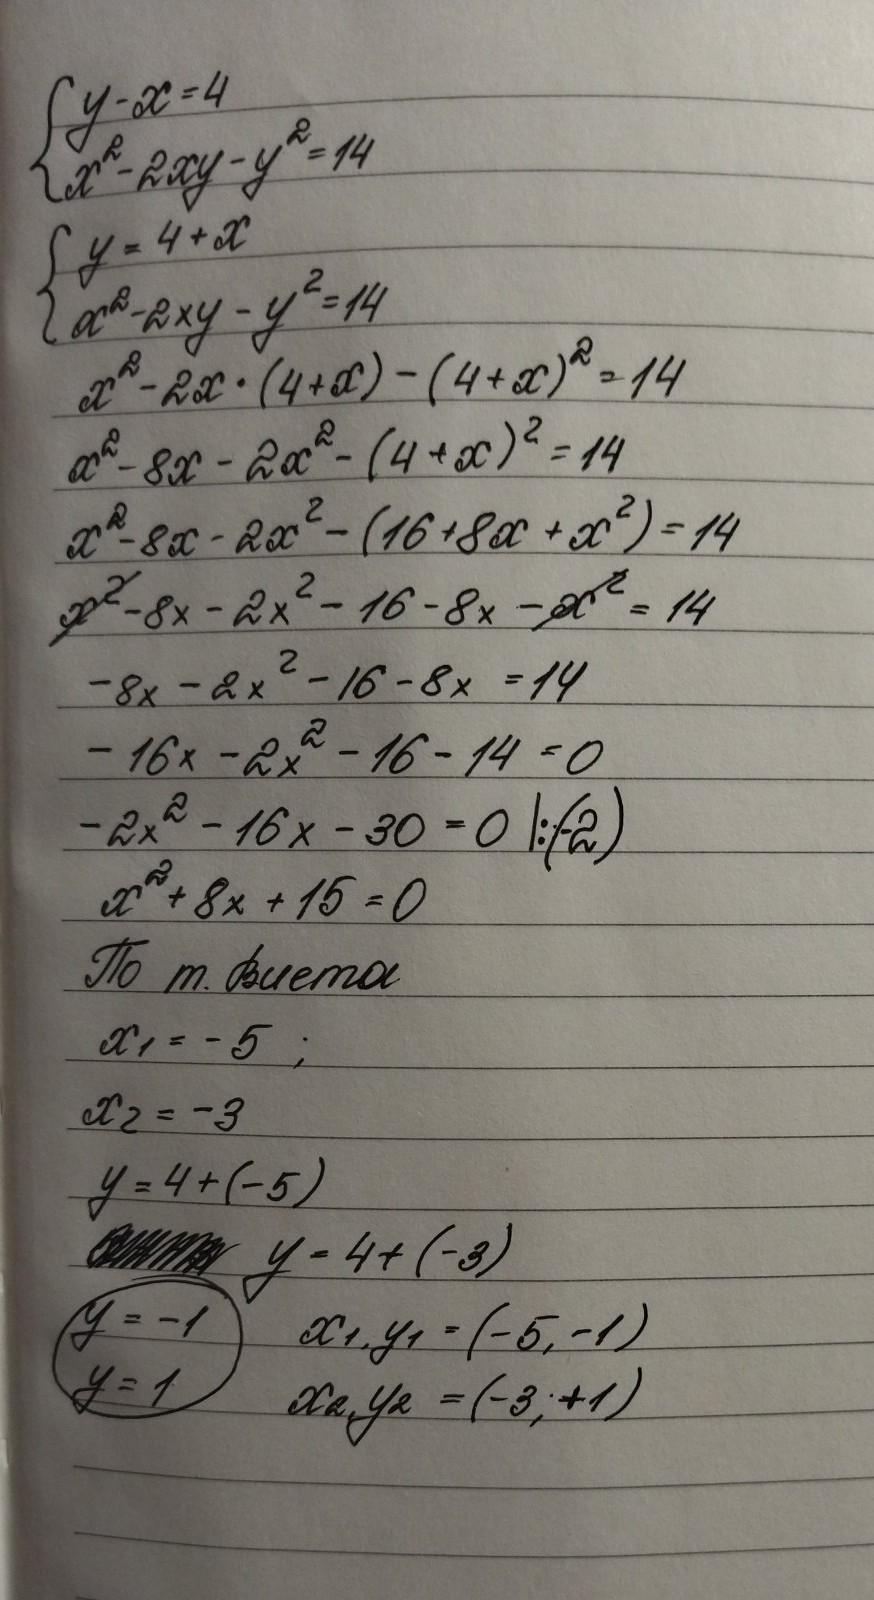 y-x=4
x²-2xy-y²=14
y=4+x
x²-2xy-y²=14
x²-2x·(4+x)-(4+x)²=14
x²-8x-2x²-(4+x)²=14
x²-8x-2x²-(16+8x+x²)=14
x²-8x-2x²-16-8x-x²=14
-8x-2x²-16-8x=14
-16x-2x²-16-14=0
-2x²-16x-30=0 |:(-2)
x²+8x+15=0
По т. Виета
x₁=-5;
x₂=-3
y=4+(-5)
y=4+(-3)
y=-1 x₁,y₁=(-5,-1)
y=1 x₂,y₂=(-3;+1)